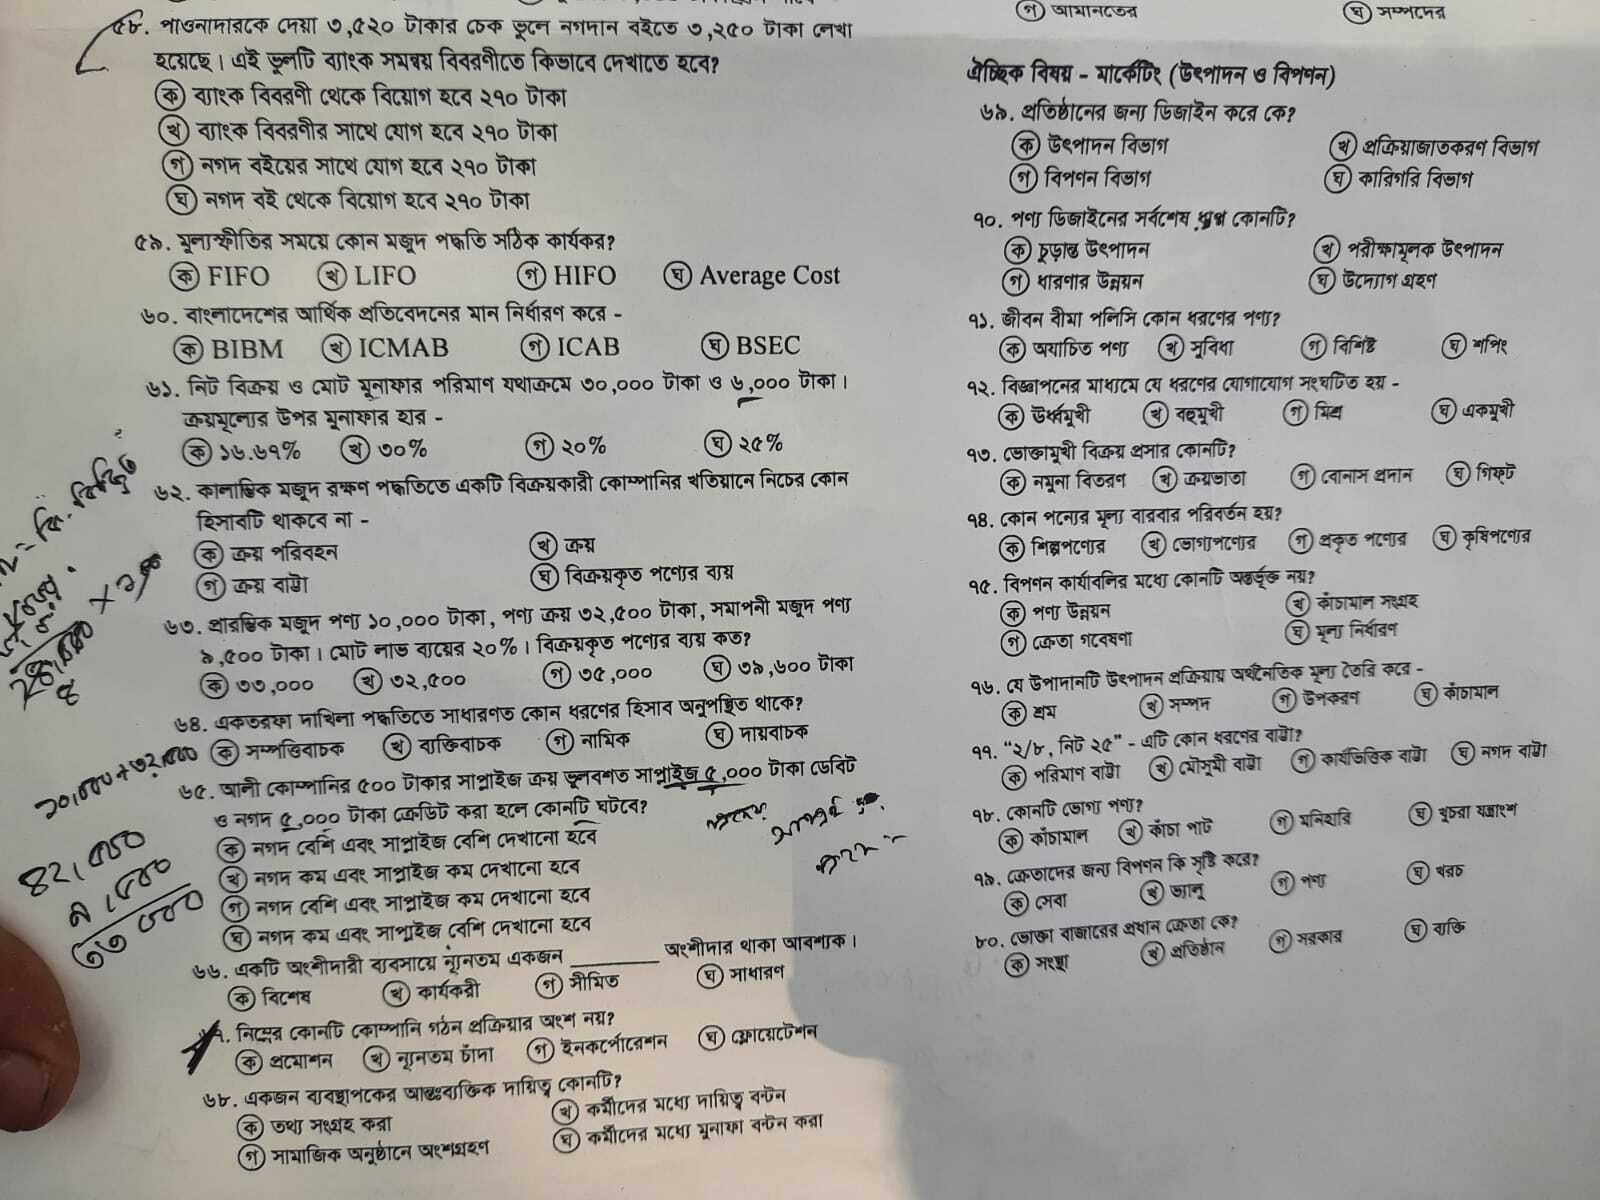 ৫৮. পাওনাদারকে দেয়া ৩,৫২০ টাকার চেক ভুলে নগদান বইতে ৩,২৫০ টাকা লেখা
হয়েছে। এই ভুলটি ব্যাংক সমন্বয় বিবরণীতে কিভাবে দেখাতে হবে?
ক ব্যাংক বিবরণী থেকে বিয়োগ হবে ২৭০ টাকা
খ ব্যাংক বিবরণীর সাথে যোগ হবে ২৭০ টাকা
গ নগদ বইয়ের সাথে যোগ হবে ২৭০ টাকা
ঘ নগদ বই থেকে বিয়োগ হবে ২৭০ টাকা
৫৯. মূল্যস্ফীতির সময়ে কোন মজুদ পদ্ধতি সঠিক কার্যকর?
ক FIFO খ LIFO গ HIFO ঘ Average Cost
৬০. বাংলাদেশের আর্থিক প্রতিবেদনের মান নির্ধারণ করে -
ক BIBM খ ICMAB গ ICAB ঘ BSEC
৬১. নিট বিক্রয় ও মোট মুনাফার পরিমাণ যথাক্রমে ৩০,০০০ টাকা ও ৬,০০০ টাকা।
ক্রয়মূল্যের উপর মুনাফার হার -
ক ১৬.৬৭% খ ৩০% গ ২০% ঘ ২৫%
৬২. কালান্তিক মজুদ রক্ষণ পদ্ধতিতে একটি বিক্রয়কারী কোম্পানির খতিয়ানে নিচের কোন
হিসাবটি থাকবে না -
ক ক্রয় পরিবহন খ ক্রয়
গ ক্রয় বাট্টা ঘ বিক্রয়কৃত পণ্যের ব্যয়
৬৩. প্রারম্ভিক মজুদ পণ্য ১০,০০০ টাকা, পণ্য ক্রয় ৩২,৫০০ টাকা, সমাপনী মজুদ পণ্য
৯,৫০০ টাকা। মোট লাভ ব্যয়ের ২০%। বিক্রয়কৃত পণ্যের ব্যয় কত?
ক ৩৩,০০০ খ ৩২,৫০০ গ ৩৫,০০০ ঘ ৩৯,৬০০ টাকা
৬৪. একতরফা দাখিলা পদ্ধতিতে সাধারণত কোন ধরণের হিসাব অনুপস্থিত থাকে?
ক সম্পত্তিবাচক খ ব্যক্তিবাচক গ নামিক ঘ দায়বাচক
৬৫. আলী কোম্পানির ৫০০ টাকার সাপ্লাইজ ক্রয় ভুলবশত সাপ্লাইজ ৫,০০০ টাকা ডেবিট
ও নগদ ৫,০০০ টাকা ক্রেডিট করা হলে কোনটি ঘটবে?
ক নগদ বেশি এবং সাপ্লাইজ বেশি দেখানো হবে
খ নগদ কম এবং সাপ্লাইজ কম দেখানো হবে
গ নগদ বেশি এবং সাপ্লাইজ কম দেখানো হবে
ঘ নগদ কম এবং সাপ্লাইজ বেশি দেখানো হবে
৬৬. একটি অংশীদারী ব্যবসায়ে ন্যূনতম একজন ________ অংশীদার থাকা আবশ্যক।
ক বিশেষ খ কার্যকরী গ সীমিত ঘ সাধারণ
৭. নিম্নের কোনটি কোম্পানি গঠন প্রক্রিয়ার অংশ নয়?
ক প্রমোশন খ ন্যূনতম চাঁদা গ ইনকর্পোরেশন ঘ ফ্লোয়েটেশন
৬৮. একজন ব্যবস্থাপকের আন্তঃব্যক্তিক দায়িত্ব কোনটি?
ক তথ্য সংগ্রহ করা খ কর্মীদের মধ্যে দায়িত্ব বন্টন
গ সামাজিক অনুষ্ঠানে অংশগ্রহণ ঘ কর্মীদের মধ্যে মুনাফা বন্টন করা
১০,০০০+৩২,৫০০
৪২,৫০০
৯,৫০০
৩৩০০০
গ আমানতের ঘ সম্পদের
ঐচ্ছিক বিষয় - মার্কেটিং (উৎপাদন ও বিপণন)
৬৯. প্রতিষ্ঠানের জন্য ডিজাইন করে কে?
ক উৎপাদন বিভাগ খ প্রক্রিয়াজাতকরণ বিভাগ
গ বিপণন বিভাগ ঘ কারিগরি বিভাগ
৭০. পণ্য ডিজাইনের সর্বশেষ ধাপ কোনটি?
ক চূড়ান্ত উৎপাদন খ পরীক্ষামূলক উৎপাদন
গ ধারণার উন্নয়ন ঘ উদ্যোগ গ্রহণ
৭১. জীবন বীমা পলিসি কোন ধরণের পণ্য?
ক অযাচিত পণ্য খ সুবিধা গ বিশিষ্ট ঘ শপিং
৭২. বিজ্ঞাপনের মাধ্যমে যে ধরণের যোগাযোগ সংঘটিত হয় -
ক উর্ধ্বমুখী খ বহুমুখী গ মিশ্র ঘ একমুখী
৭৩. ভোক্তামুখী বিক্রয় প্রসার কোনটি?
ক নমুনা বিতরণ খ ক্রয়ভাতা গ বোনাস প্রদান ঘ গিফ্ট
৭৪. কোন পন্যের মূল্য বারবার পরিবর্তন হয়?
ক শিল্পপণ্যের খ ভোগ্যপণ্যের গ প্রকৃত পণ্যের ঘ কৃষিপণ্যের
৭৫. বিপণন কার্যাবলির মধ্যে কোনটি অন্তর্ভূক্ত নয়?
ক পণ্য উন্নয়ন খ কাঁচামাল সংগ্রহ
গ ক্রেতা গবেষণা ঘ মূল্য নির্ধারণ
৭৬. যে উপাদানটি উৎপাদন প্রক্রিয়ায় অর্থনৈতিক মূল্য তৈরি করে -
ক শ্রম খ সম্পদ গ উপকরণ ঘ কাঁচামাল
৭৭. “২/৮, নিট ২৫” - এটি কোন ধরণের বাট্টা?
ক পরিমাণ বাট্টা খ মৌসুমী বাট্টা গ কার্যভিত্তিক বাট্টা ঘ নগদ বাট্টা
৭৮. কোনটি ভোগ্য পণ্য?
ক কাঁচামাল খ কাঁচা পাট গ মনিহারি ঘ খুচরা যন্ত্রাংশ
৭৯. ক্রেতাদের জন্য বিপণন কি সৃষ্টি করে?
ক সেবা খ ভ্যালু গ পণ্য ঘ খরচ
৮০. ভোক্তা বাজারের প্রধান ক্রেতা কে?
ক সংস্থা খ প্রতিষ্ঠান গ সরকার ঘ ব্যক্তি